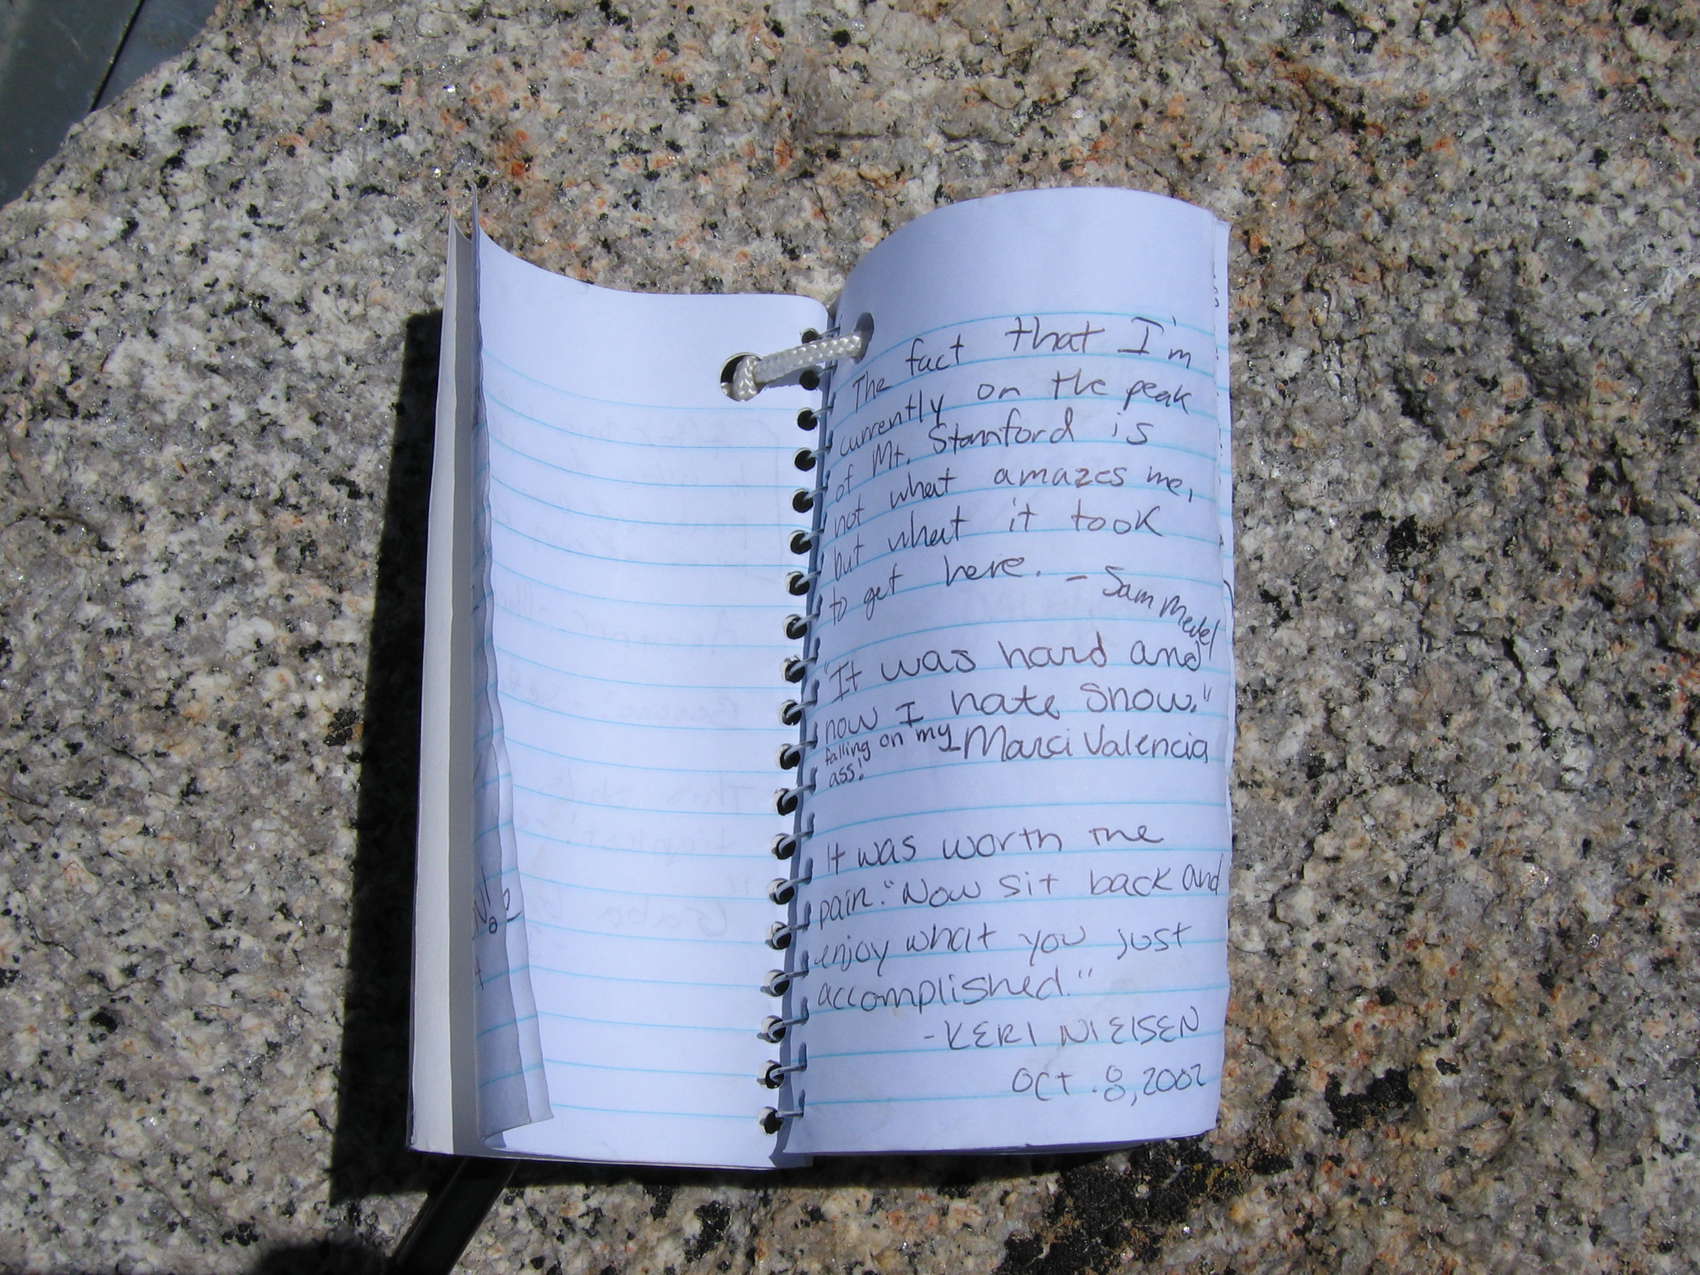 The fact that I'm
currently on the peak
of Mt. Stanford is
not what amazes me,
but what it took
to get here. - Sam
"It was hard and
now I hate snow."
falling on my
ass!
-Marci Valencia
It was worth the
pain. "Now sit back and
enjoy what you just
accomplished."
-KERI NIELSEN
Oct. 8, 2002